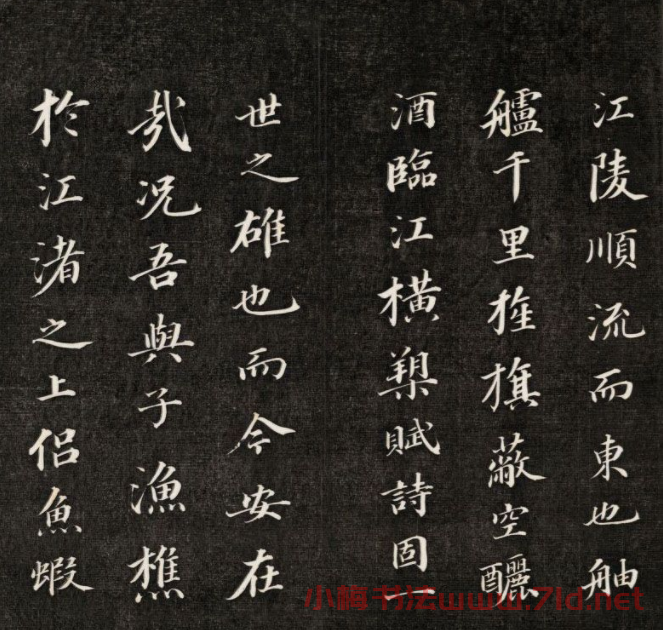 江陵順流而東也舳
艫千里旌旗蔽空釃
酒臨江橫槊賦詩固一
世之雄也而今安在
哉况吾與子漁樵
於江渚之上侶魚蝦
小梅书法www.7ld.net